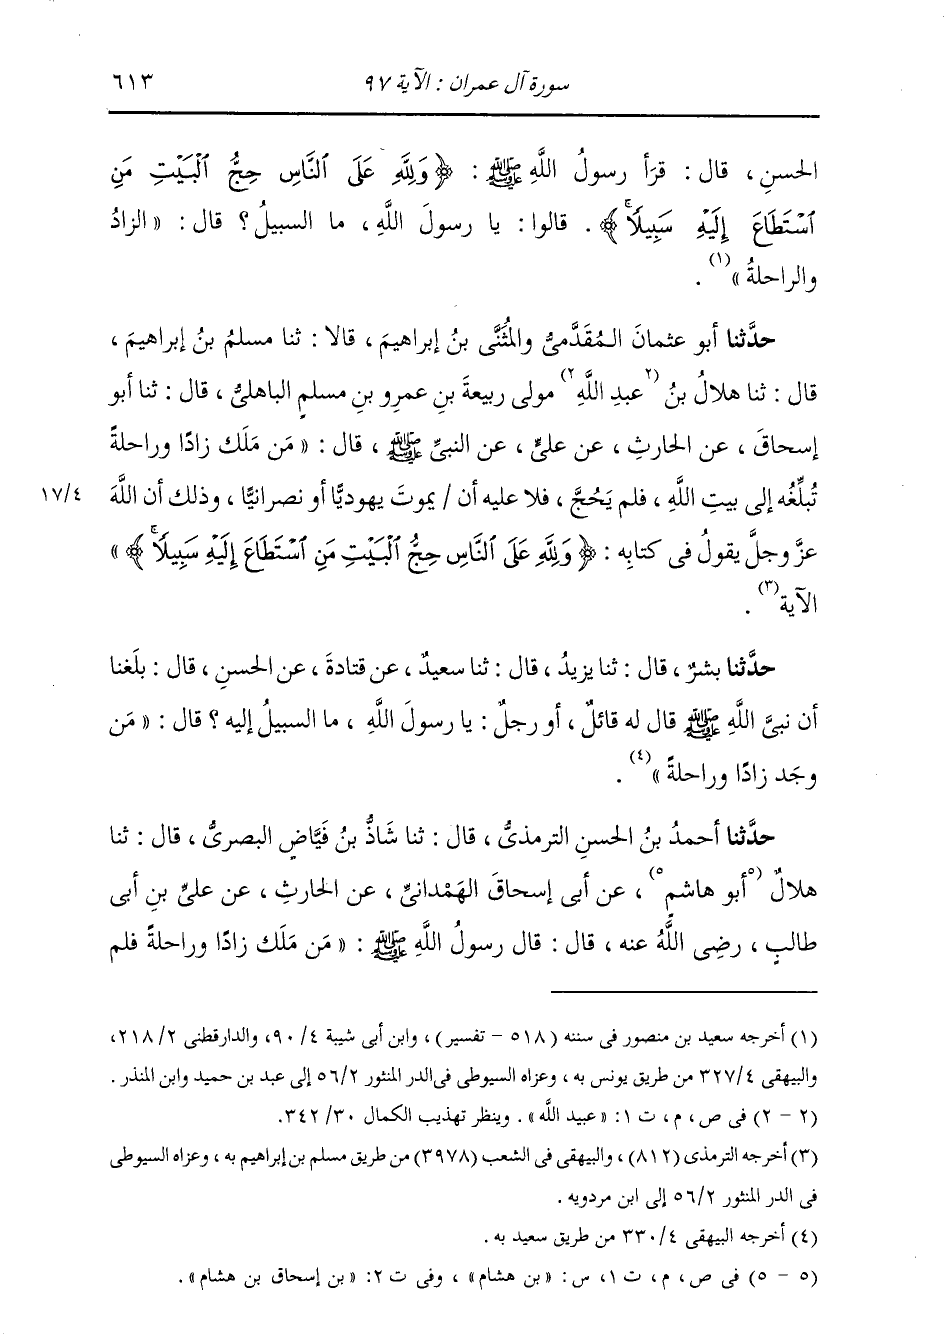 سورة آل عمران : الآية ٩٧ ٦١٣
الحسنِ ، قال : قرَأ رسولُ اللَّهِ ﷺ : ﴿ وَلِلَّهِ عَلَى ٱلنَّاسِ حِجُّ ٱلْبَيْتِ مَنِ
ٱسْتَطَاعَ إِلَيْهِ سَبِيلًاۚ ﴾ . قالوا : يا رسولَ اللَّهِ ، ما السبيلُ ؟ قال : « الزادُ
والراحلةُ »(١) .
حدَّثنا أبو عثمانَ المُقَدَّمىُّ والمُثَنَّى بنُ إبراهيمَ ، قالا : ثنا مسلمُ بنُ إبراهيمَ ،
قال : ثنا هلالُ بنُ (٢عبدِ اللَّهِ٢) مولى ربيعةَ بنِ عمرِو بنِ مسلمٍ الباهلىُّ ، قال : ثنا أبو
إسحاقَ ، عن الحارثِ ، عن علىٍّ ، عن النبىِّ ﷺ ، قال : « مَن مَلَك زادًا وراحلةً
تُبلِّغُه إلى بيتِ اللَّهِ ، فلم يَحُجَّ ، فلا عليه أن / يموتَ يهوديًّا أو نصرانيًّا ، وذلك أن اللَّهَ ١٧/٤
عزَّ وجلَّ يقولُ فى كتابِه : ﴿ وَلِلَّهِ عَلَى ٱلنَّاسِ حِجُّ ٱلْبَيْتِ مَنِ ٱسْتَطَاعَ إِلَيْهِ سَبِيلًاۚ ﴾ »
الآية(٣) .
حدَّثنا بشرٌ ، قال : ثنا يزيدُ ، قال : ثنا سعيدٌ ، عن قتادةَ ، عن الحسنِ ، قال : بلَغنا
أن نبىَّ اللَّهِ ﷺ قال له قائلٌ ، أو رجلٌ : يا رسولَ اللَّهِ ، ما السبيلُ إليه ؟ قال : « مَن
وجَد زادًا وراحلةً »(٤) .
حدَّثنا أحمدُ بنُ الحسنِ الترمذىُّ ، قال : ثنا شَاذُّ بنُ فَيَّاضٍ البصرىُّ ، قال : ثنا
هلالٌ (٥أبو هاشمٍ٥) ، عن أبى إسحاقَ الهَمْدانىِّ ، عن الحارثِ ، عن علىِّ بنِ أبى
طالبٍ ، رضِى اللَّهُ عنه ، قال : قال رسولُ اللَّهِ ﷺ : « مَن مَلَك زادًا وراحلةً فلم
(١) أخرجه سعيد بن منصور فى سننه (٥١٨ - تفسير) ، وابن أبى شيبة ٩٠/٤، والدارقطنى ٢١٨/٢،
والبيهقى ٣٢٧/٤ من طريق يونس به ، وعزاه السيوطى فى الدر المنثور ٥٦/٢ إلى عبد بن حميد وابن المنذر .
(٢ - ٢) فى ص ، م ، ت ١: « عبيد اللَّه » . وينظر تهذيب الكمال ٣٤٢/٣٠.
(٣) أخرجه الترمذى (٨١٢) ، والبيهقى فى الشعب (٣٩٧٨) من طريق مسلم بن إبراهيم به ، وعزاه السيوطى
فى الدر المنثور ٥٦/٢ إلى ابن مردويه .
(٤) أخرجه البيهقى ٣٣٠/٤ من طريق سعيد به .
(٥ - ٥) فى ص ، م ، ت ١، س : « بن هشام » ، وفى ت ٢: « بن إسحاق بن هشام » .